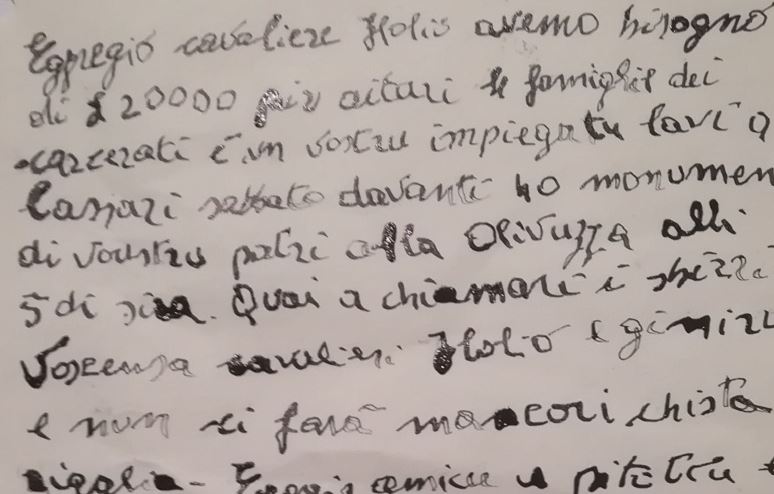 Eggregio cavaliere Florio avemo bisogno
di £ 20000 pir aitari 4 famiglie dei
carcerati e un vostru impiegatu lavi a
lassari sabbato davanti lo monumen
di vostru patri alla Olivuzza alli
5 di sira. Quai a chiamari i sbirri
Voscenza cavaleri Florio e ginirusu
e nun ci farà mancori chista
amicu u